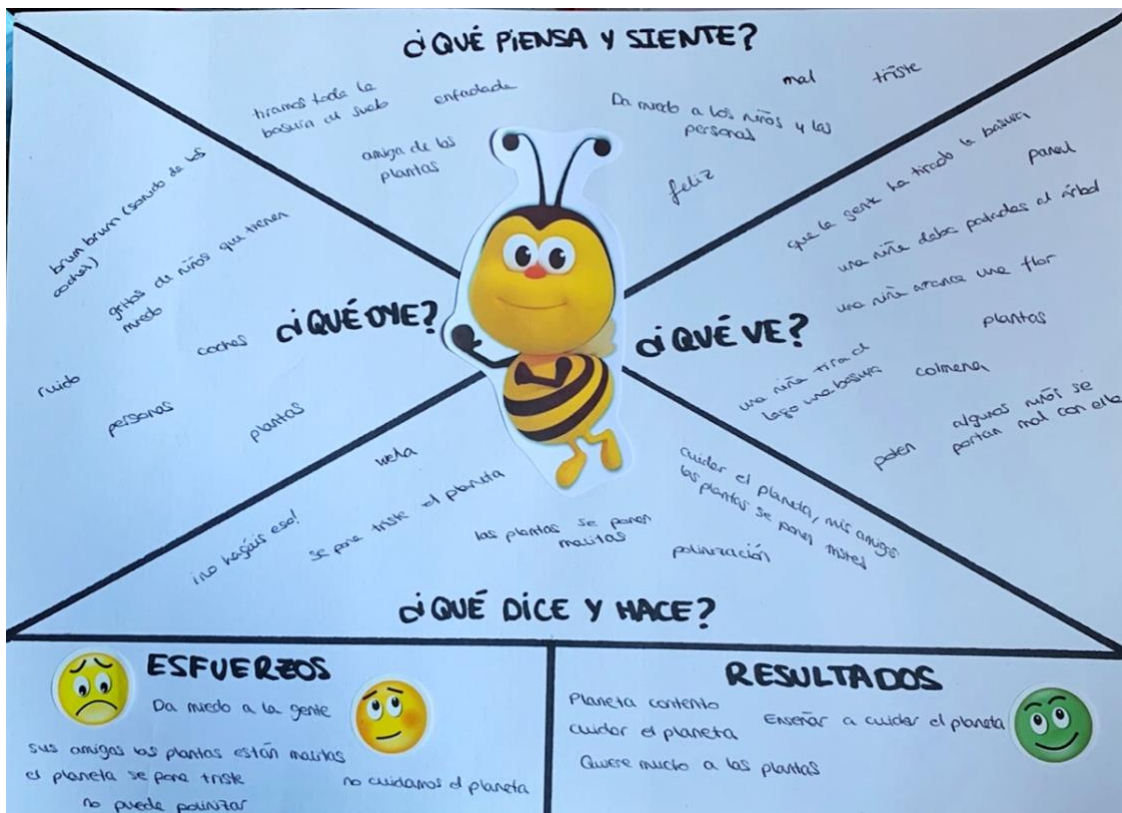 ¿QUÉ PIENSA Y SIENTE?
tiramos toda la
basura al suelo
enfadada
amiga de las
plantas
Da miedo a los niños y las
personas
mal
triste
feliz
¿QUÉ OYE?
brum brum (sonido de los
coches)
gritos de niños que tienen
miedo
coches
ruido
personas
plantas
¿QUÉ VE?
que la gente ha tirado la basura
panal
una niña daba patadas al árbol
una niña arranca una flor
plantas
una niña tira al
lago una basura
colmena
polen
algunos niños se
portan mal con ella
¡no hagáis eso!
se pone triste el planeta
las plantas se ponen
malitas
polinización
cuidar el planeta, mis amigas
las plantas se ponen tristes
¿QUÉ DICE Y HACE?
ESFUERZOS
Da miedo a la gente
sus amigas las plantas están malitas
el planeta se pone triste
no puede polinizar
no cuidamos el planeta
RESULTADOS
Planeta contento
cuidar el planeta
Enseñar a cuidar el planeta
Quiere mucho a las plantas